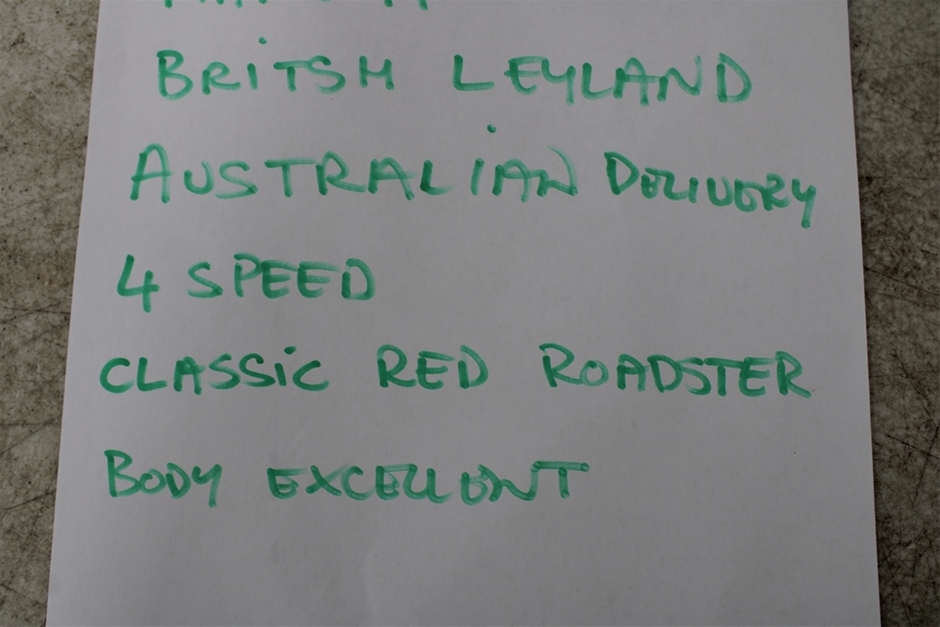 BRiTSH LEYLAND
AUSTRALiAN DELIVERY
4 SPEED
CLASSiC RED ROADSTER
BODY EXCELLENT